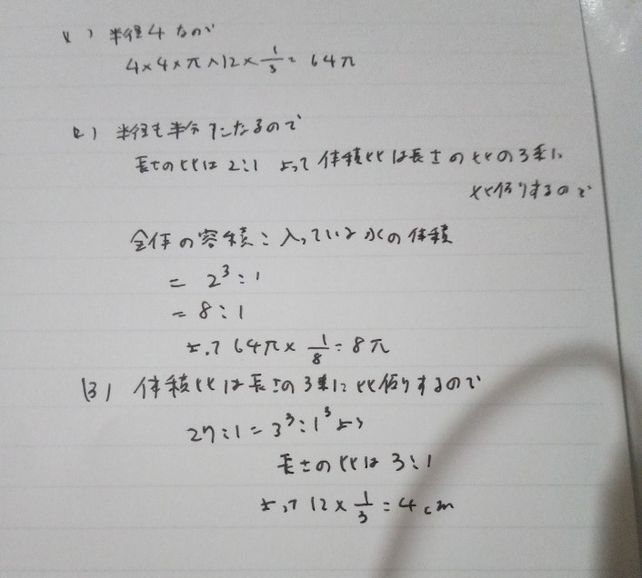 (1) 半径4なので
4×4×π×12×1/3=64π
(2) 半径も半分になるので
長さの比は2:1 よって体積比は長さの比の3乗に
比例するので
全体の容積:入っている水の体積
= 2³:1
= 8:1
よって 64π×1/8=8π
(3) 体積比は長さの3乗に比例するので
27:1=3³:1³より
長さの比は3:1
よって12×1/3=4cm